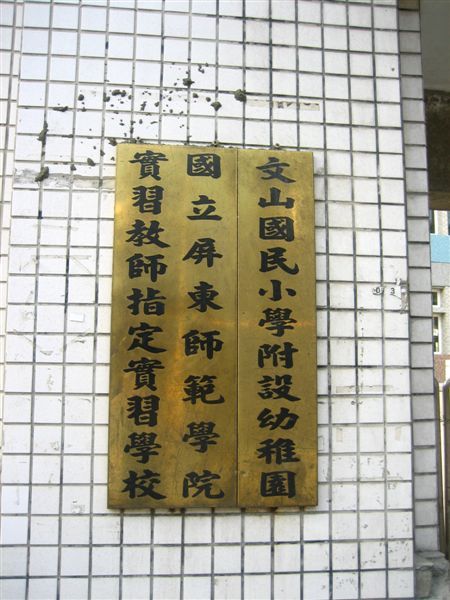 文山國民小學附設幼稚園
國立屏東師範學院
實習教師指定實習學校